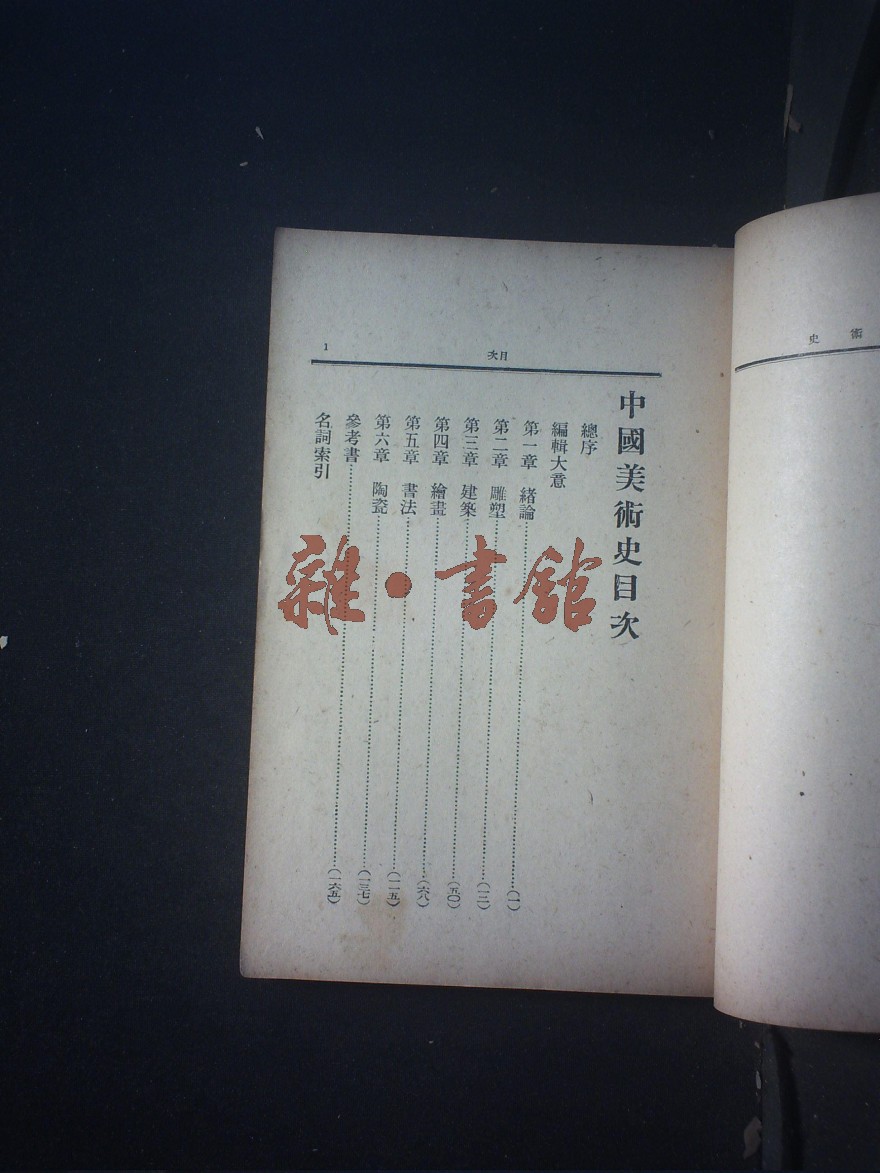 術史
目次
1
中國美術史目次
總序
編輯大意
第一章 緒論……(一)
第二章 雕塑……(一二)
第三章 建築……(五〇)
第四章 繪畫……(六八)
第五章 書法……(一一五)
第六章 陶瓷……(一三七)
參考書……(一六五)
名詞索引
雜·書館